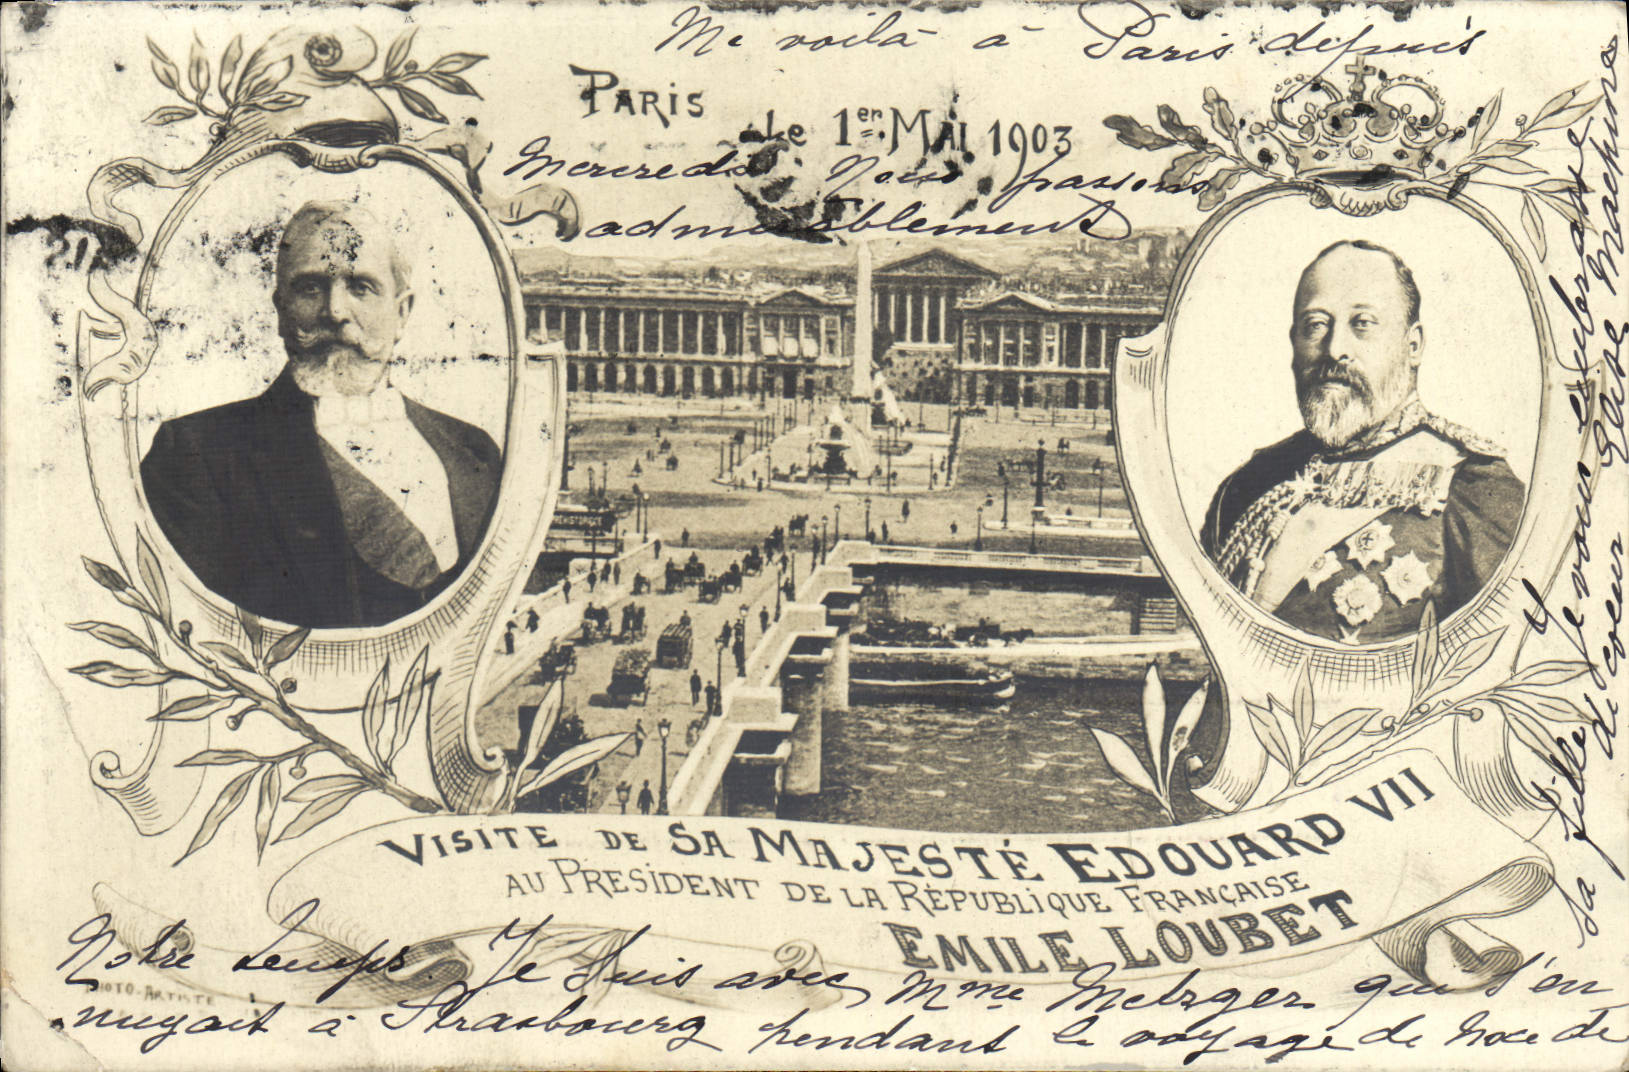 Me voilà à Paris depuis
PARIS
Le 1er MAI 1903
Mercredi Nous passons
admirablement
PREHISTORIQUE
VISITE DE SA MAJESTÉ EDOUARD VII
AU PRESIDENT DE LA RÉPUBLIQUE FRANÇAISE
EMILE LOUBET
Notre temps. Je suis avec Mme Metzger qui s'en
PHOTO-ARTISTE
nuyait à Strasbourg pendant le voyage de Noce de
sa fille Je vous embrasse
de coeur Elise Machina